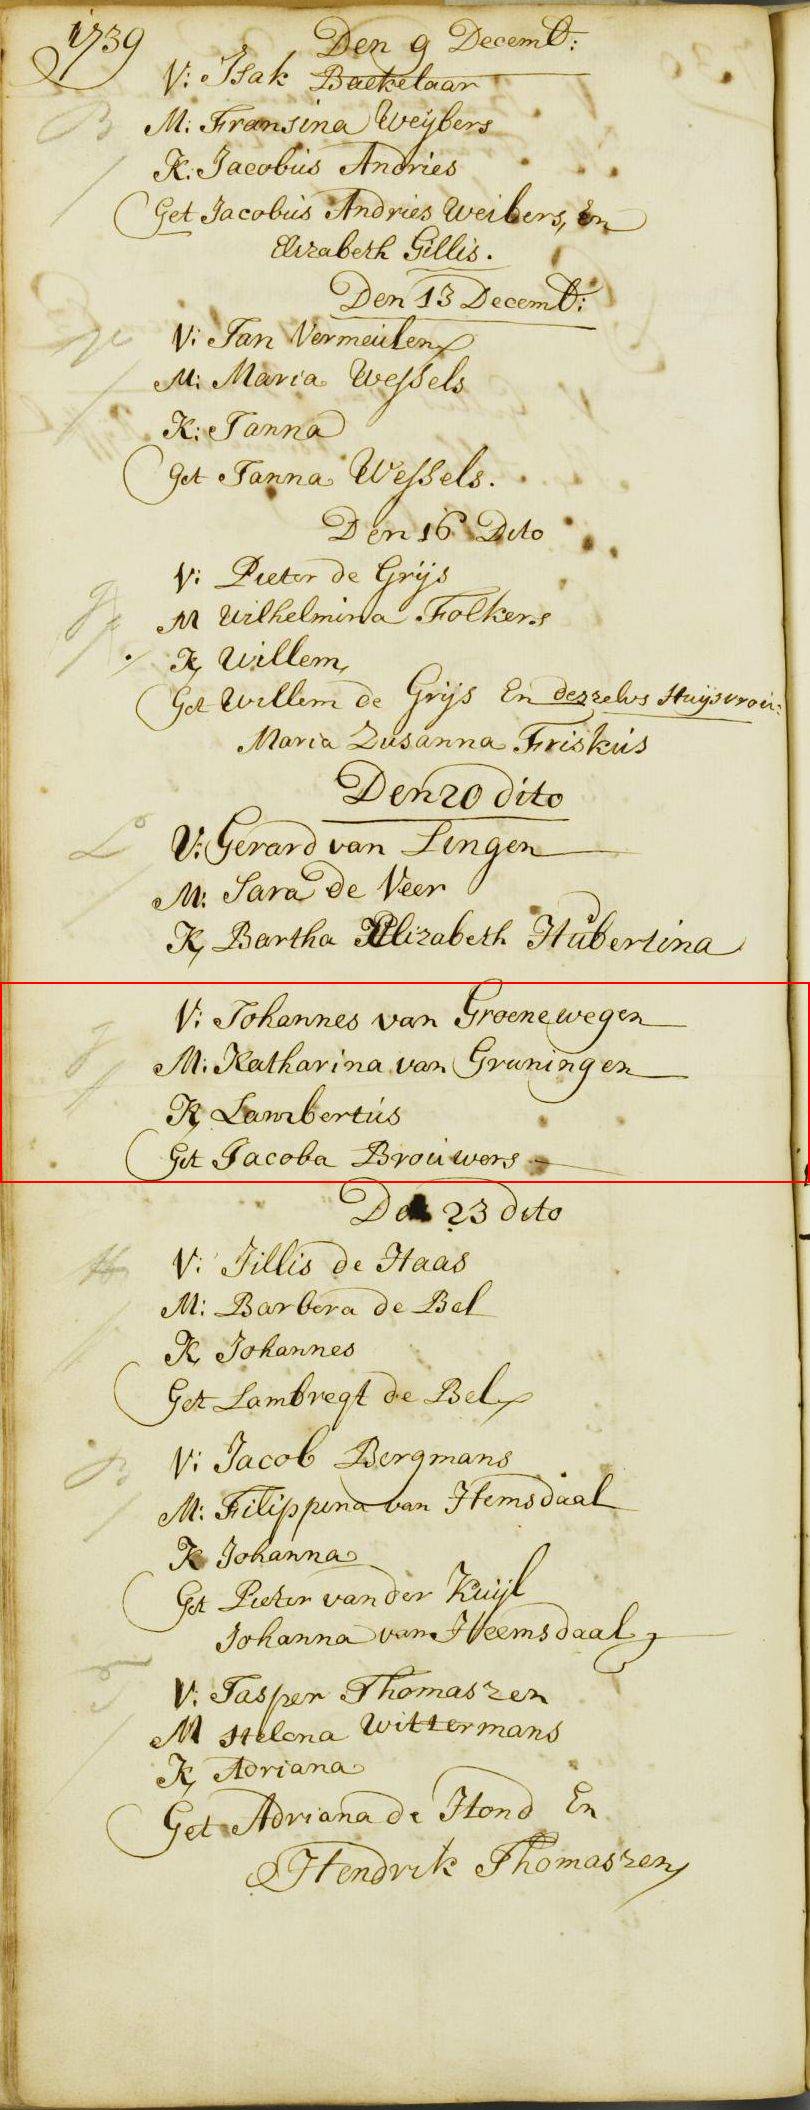 1739
Den 9 Decemb:
V: Isak Baekelaar
B
M: Fransina Weybers
K: Jacobus Andries
Get Jacobus Andries Weibers, En
Elizabeth Gillis.
Den 13 Decemb:
V: Jan Vermeulen
M: Maria Wessels
K: Janna
Get Janna Wessels.
Den 16 Dito
V: Pieter de Grijs
M Wilhelmina Folkers
K, Willem,
Get Willem de Grijs En deszelvs Huijsvrou:
Maria Zusanna Friskus
Den 20 dito
L
V: Gerard van Lingen
M: Sara de Veer
K, Bartha Elizabeth Hubertina
V: Johannes van Groenewegen
g
M: Katharina van Gruningen
K, Lambertus
Get Jacoba Brouwers
De 23 dito
H
V: Jillis de Haas
M: Barbera de Bel
K, Johannes
Get Lambregt de Bel
B
V: Jacob Bergmans
M: Filippina van Hemsdaal
K Johanna
Get Pieter van der Kuijl
Johanna van Heemsdaal
T
V: Jasper Thomaszen
M Helena Wittermans
K, Adriana
Get Adriana de Hond En
Hendrik Thomaszen